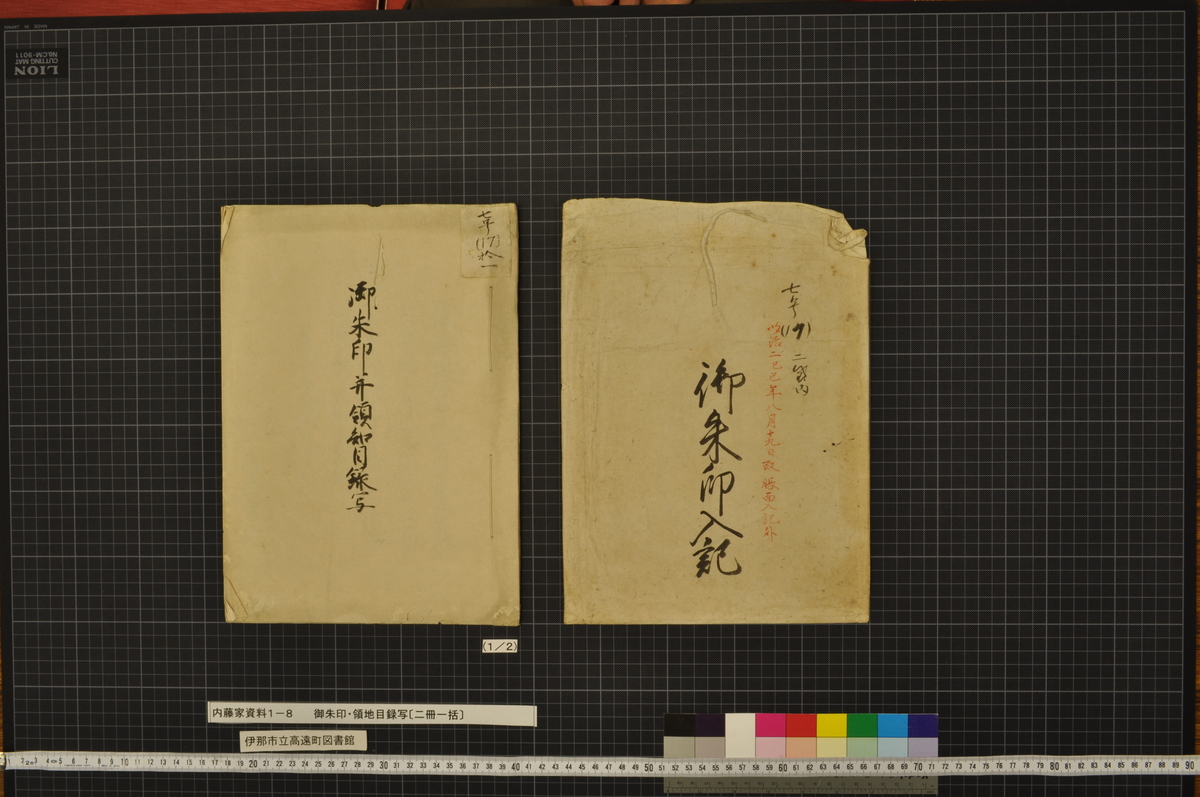 七午
(17)
拾一
御朱印并領知目録写
七午
(17)
二袋内
明治二己巳年八月十九日改 帳面入記外
御朱印入記
(1/2)
内藤家資料1-8 御朱印・領地目録写〔二冊一括〕
伊那市立高遠町図書館
LION
CUTTING MAT
No.CM-9011